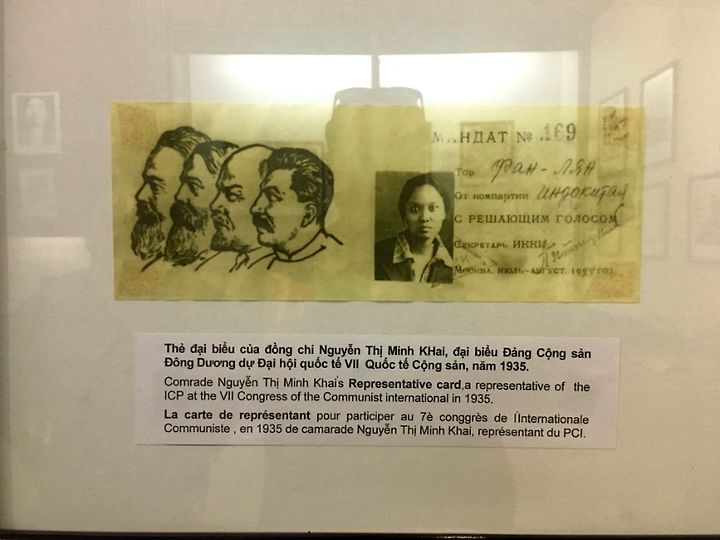 МАНДАТ № 169
Тов Фан-Лян
От компартии Индокитая
С РЕШАЮЩИМ ГОЛОСОМ
Секретарь ИККИ
Москва, июль-август, 1935 год.
Thẻ đại biểu của đồng chí Nguyễn Thị Minh KHai, đại biểu Đảng Cộng sản
Đông Dương dự Đại hội quốc tế VII Quốc tế Cộng sản, năm 1935.
Comrade Nguyễn Thị Minh Khai's Representative card,a representative of the
ICP at the VII Congress of the Communist international in 1935.
La carte de représentant pour participer au 7è conggrès de l'Internationale
Communiste , en 1935 de camarade Nguyễn Thị Minh Khai, représentant du PCI.